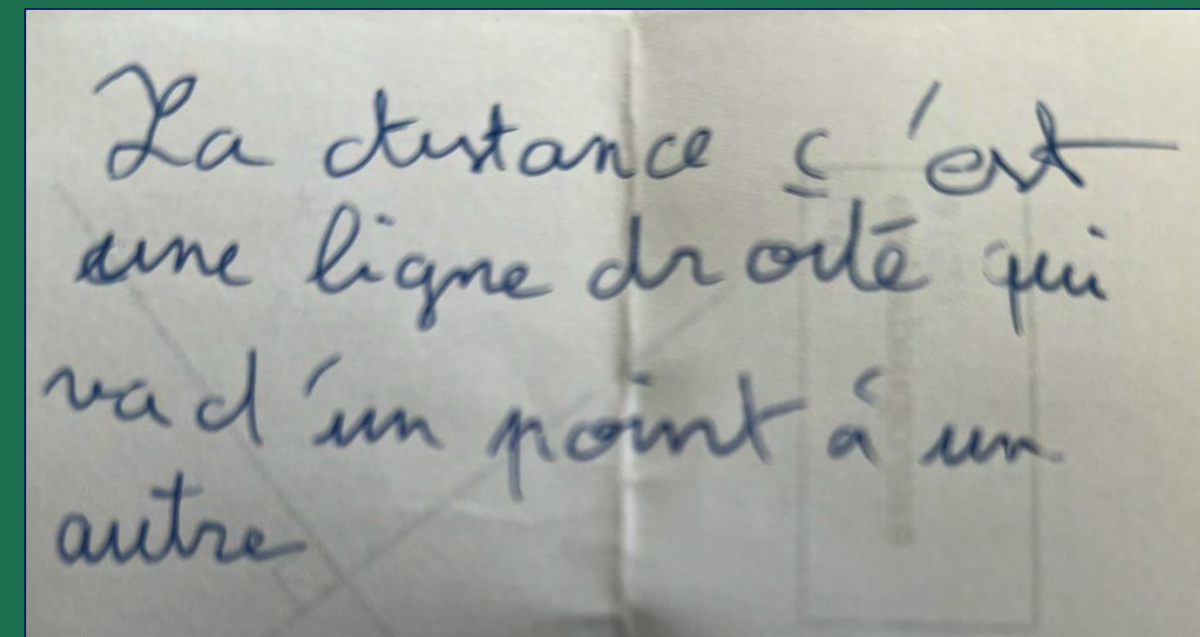 La distance c'est
une ligne droité qui
va d'un point à un
autre